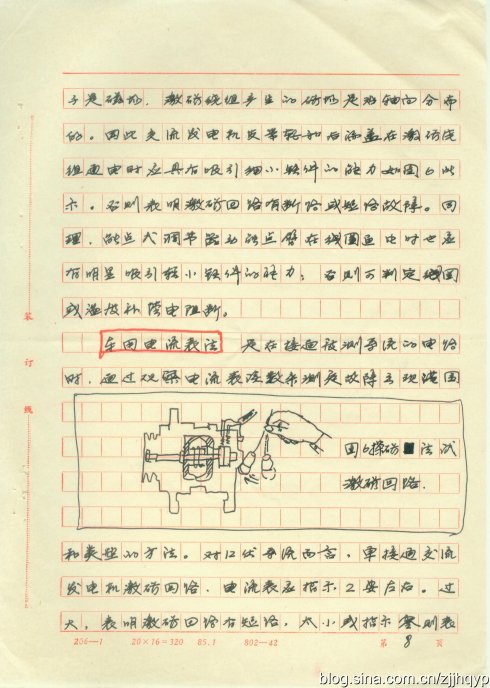 子是磁场，激磁绕组产生的磁场是沿轴向分布
的。因此交流发电机皮带轮和后端盖在激磁绕
组通电时应具有吸引细小铁件的能力如图6所
示。否则表明激磁回路有断路或短路故障。同
理，触点式调节器动触点臂在线圈通电时也应
有明显吸引轻小铁件的能力；否则可判定线圈
或温度补偿电阻断。
车用电流表法 是在接通被测导流的电路
时，通过观察电流表读数来测定故障出现范围
图6探磁法试
激磁回路.
和类型的方法。对12伏导流而言，单接通交流
发电机激磁回路，电流表应指示2安左右。过
大，表明激磁回路有短路，太小或指示零则表
装
订
线
256—1 20×16=320 85.1 802—42 第 8 页
blog.sina.com.cn/zjjhqyp